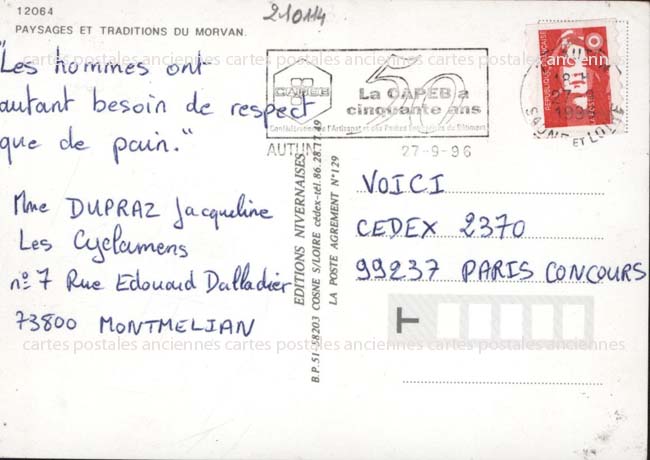 12064
PAYSAGES ET TRADITIONS DU MORVAN.
210114
"Les hommes ont
autant besoin de respect
que de pain."
Mme DUPRAZ Jacqueline
Les Cyclamens
n° 7 Rue Edouard Dalladier
73800 MONTMELIAN
CAPEB
50
La CAPEB a
cinquante ans
Confédération de l'Artisanat et des Petites Entreprises du Bâtiment
AUTUN
27-9-96
REPUBLIQUE FRANÇAISE
SAONE ET LOIRE
EDITIONS NIVERNAISES
B.P. 51-58203 COSNE S/LOIRE cédex-tél. 86.28.17.49
LA POSTE AGREMENT N° 129
VOICI
CEDEX 2370
99237 PARIS CONCOURS
T
cartes postales anciennes cartes postales anciennes cartes postales anciennes
cartes postales anciennes cartes postales anciennes cartes postales anciennes